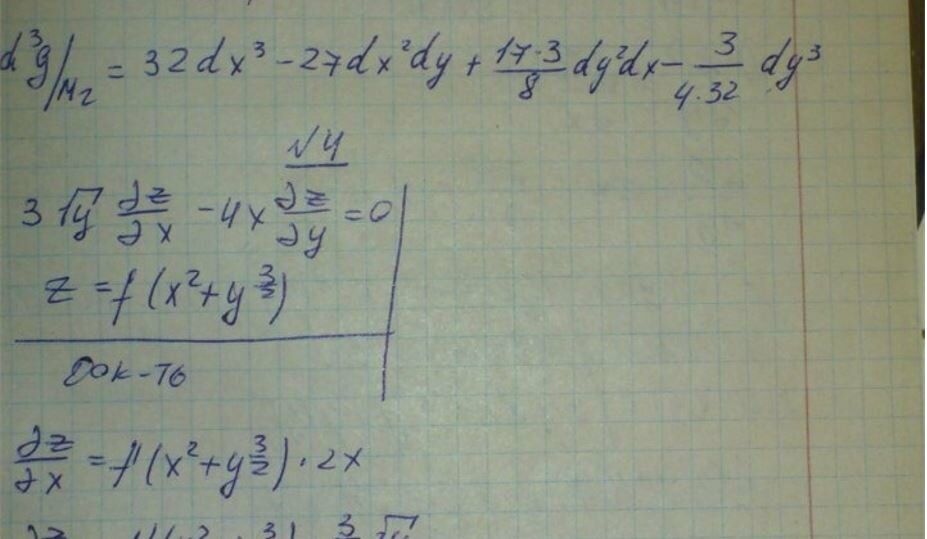 d³g/M₂ = 32dx³ - 27dx²dy + 17·3/8 dy²dx - 3/4·32 dy³
√4
3√y ∂z/∂x - 4x ∂z/∂y = 0
z = f(x² + y^(3/2))
Док-ть
∂z/∂x = f'(x² + y^(3/2)) · 2x